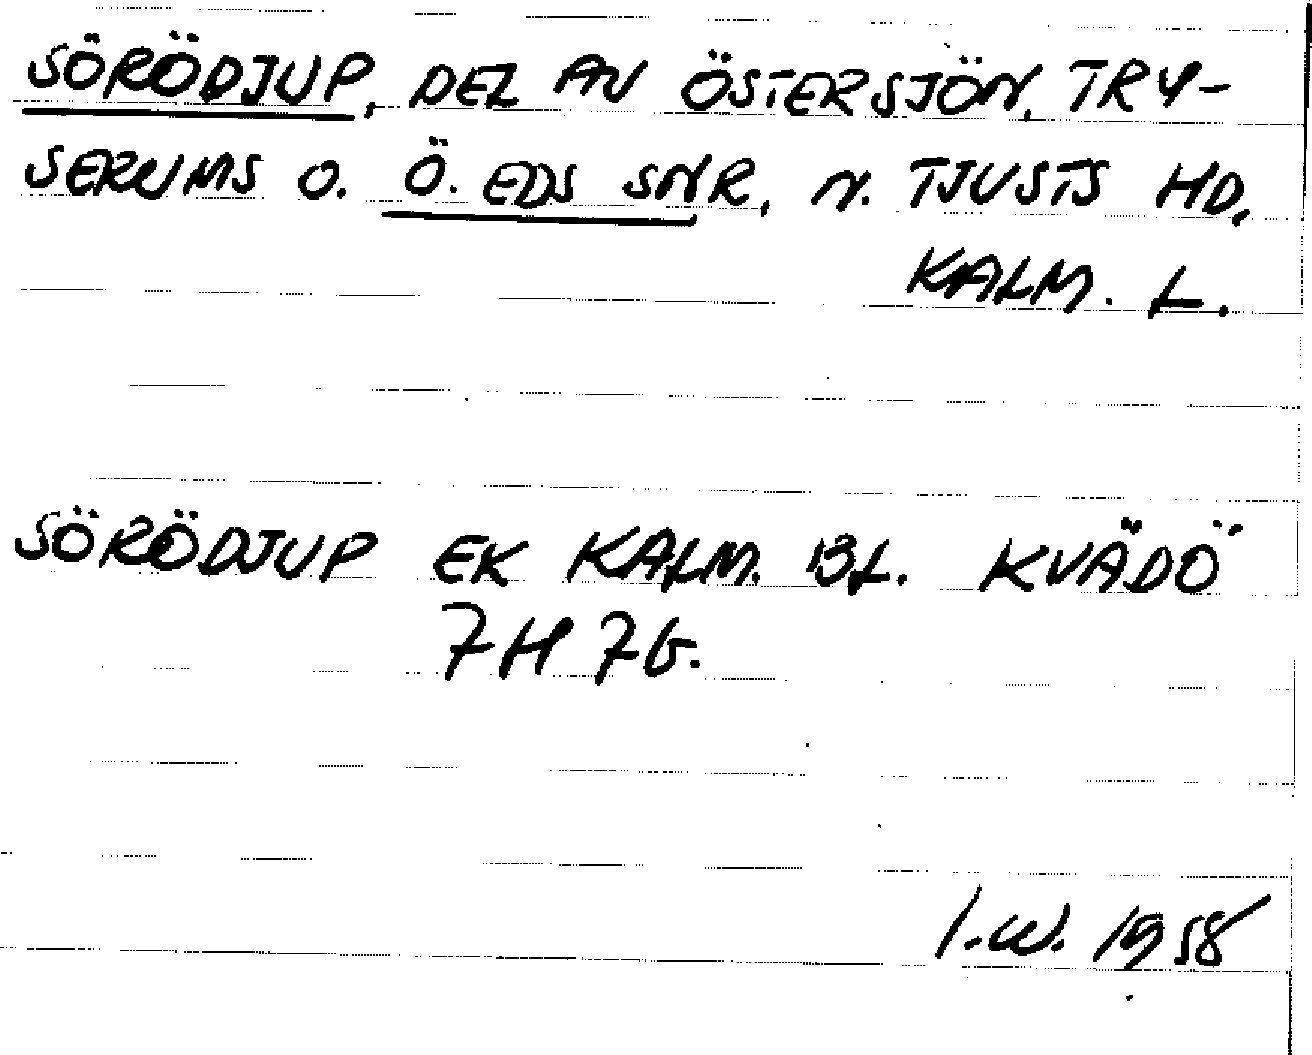 SÖRÖDJUP, DEL AV ÖSTERSJÖN, TRY-
SERUMS O. Ö. EDS SNR, N. TJUSTS HD,
KALM. L.
SÖRÖDJUP EK KALM. BL. KVÄDÖ
7H 7G.
I.W. 1958